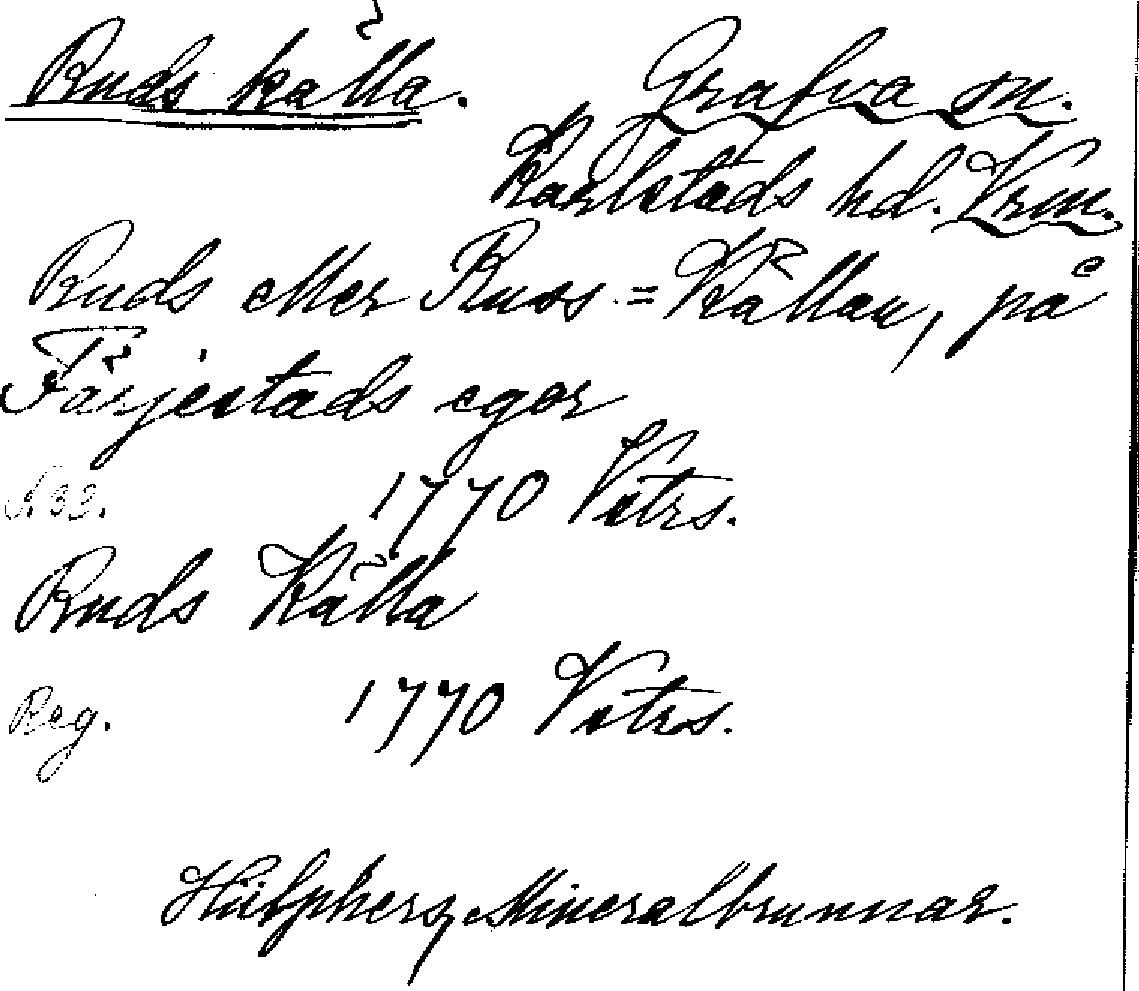 Ruds källa. Grafva sn.
Karlstads hd. Vrm.
Ruds eller Russ=Källan, på
Färjestads egor
N 33. 1770 Vstrs.
Ruds Källa
Reg. 1770 Vstrs.
Hülphers, Mineralbrunnar.